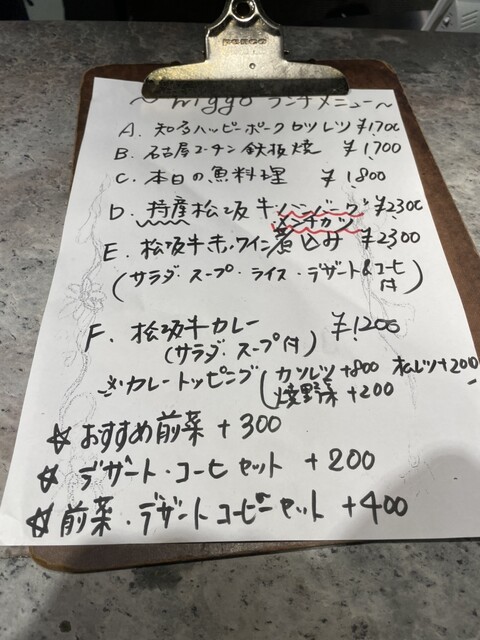 ～ ランチメニュー～
A. 知多ハッピーポーク カツレツ ¥1,700
B. 名古屋コーチン 鉄板焼 ¥1,700
C. 本日の魚料理 ¥1,800
D. 特産松坂牛ハンバーグ ¥2300
メンチカツ
E. 松坂牛赤ワイン煮込み ¥2300
(サラダ・スープ・ライス・デザート&コーヒ付)
F. 松坂牛カレー ¥1,200
(サラダ・スープ付)
※カレートッピング(カツレツ+800 +200
焼野菜+200
☆おすすめ前菜+300
☆デザート・コーヒセット +200
☆前菜・デザートコーヒーセット +400